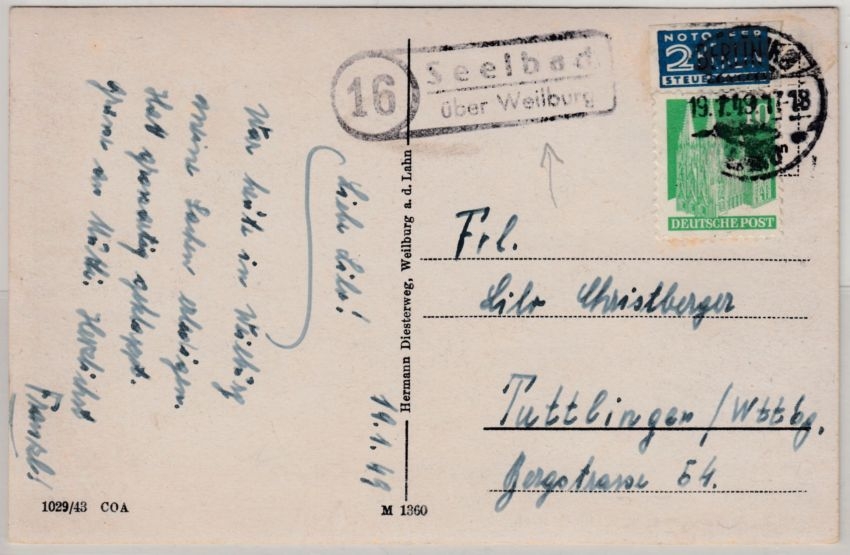 16
Seelbad
über Weilburg
NOTOPFER
2
BERLIN
STEUERMARKE
19.1.49.17-18
10
DEUTSCHE POST
19.1.49
Liebe Lilo!
War heute in Weilburg
meine Sachen erledigen.
Hat grossartig geklappt.
Grüsse an Mutti. Herzlichst
Frl.
Lilo Christberger
Tuttlingen/Wttbg.
Bergstrasse 54.
Hermann Diesterweg, Weilburg a. d. Lahn
1029/43 COA
M 1360